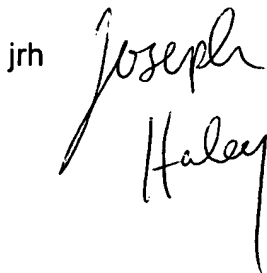 jrh Joseph
Haley